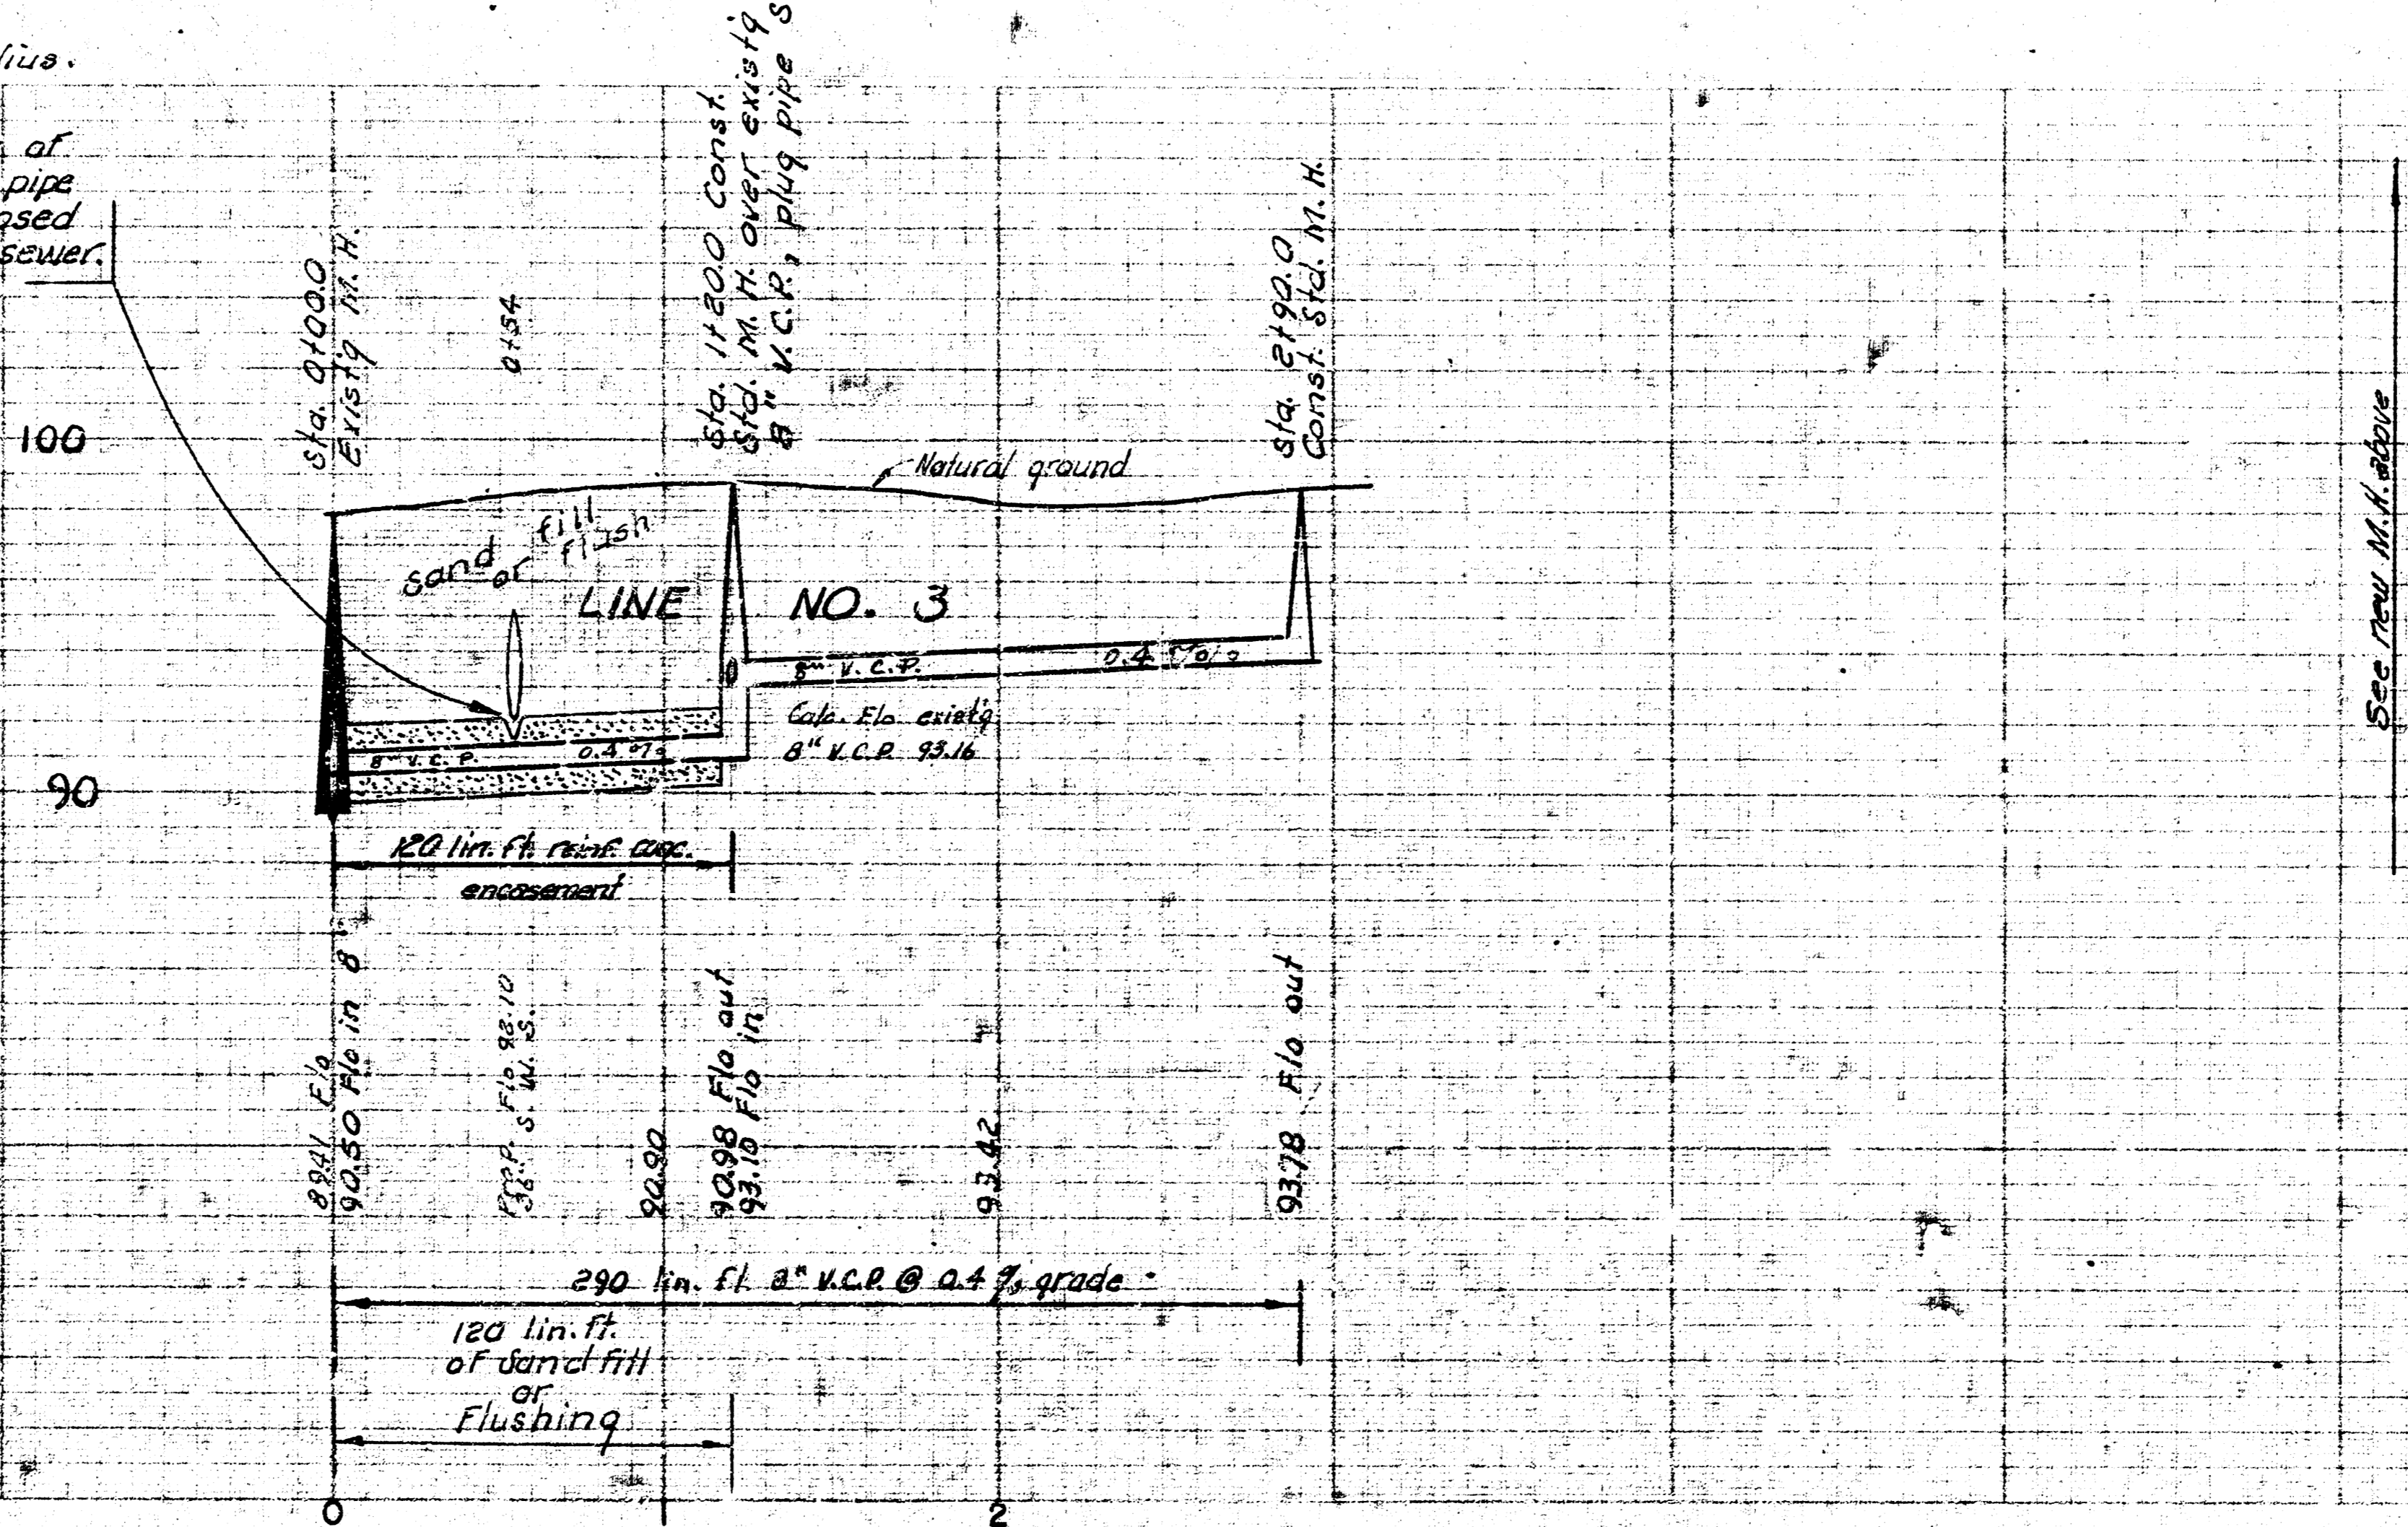 of
pipe
sewer.
Sta. 0+00.0
Exist'g M. H.
0+54
Sta. 1+20.0 Const.
Std. M. H. over exist'g
8" V.C.P., plug pipe S
Sta. 2+90.0
Const. Std. M. H.
See new M.H. above
100
Natural ground
sand fill
or flush
LINE NO. 3
8" V. C. P. 0.4 %
Calc. Flo exist'g
8" V.C.P. 93.16
8" V. C. P. 0.4 %
90
120 lin. ft. reinf. conc.
encasement
89.41 Flo
90.50 Flo in 8"
Prop. Flo 92.10
36" S. W. S.
90.90
90.98 Flo out
93.10 Flo in
93.42
93.78 Flo out
290 lin. ft. 8" V.C.P. @ 0.4 % grade
120 lin. ft.
of Sand fill
or
Flushing
0
2